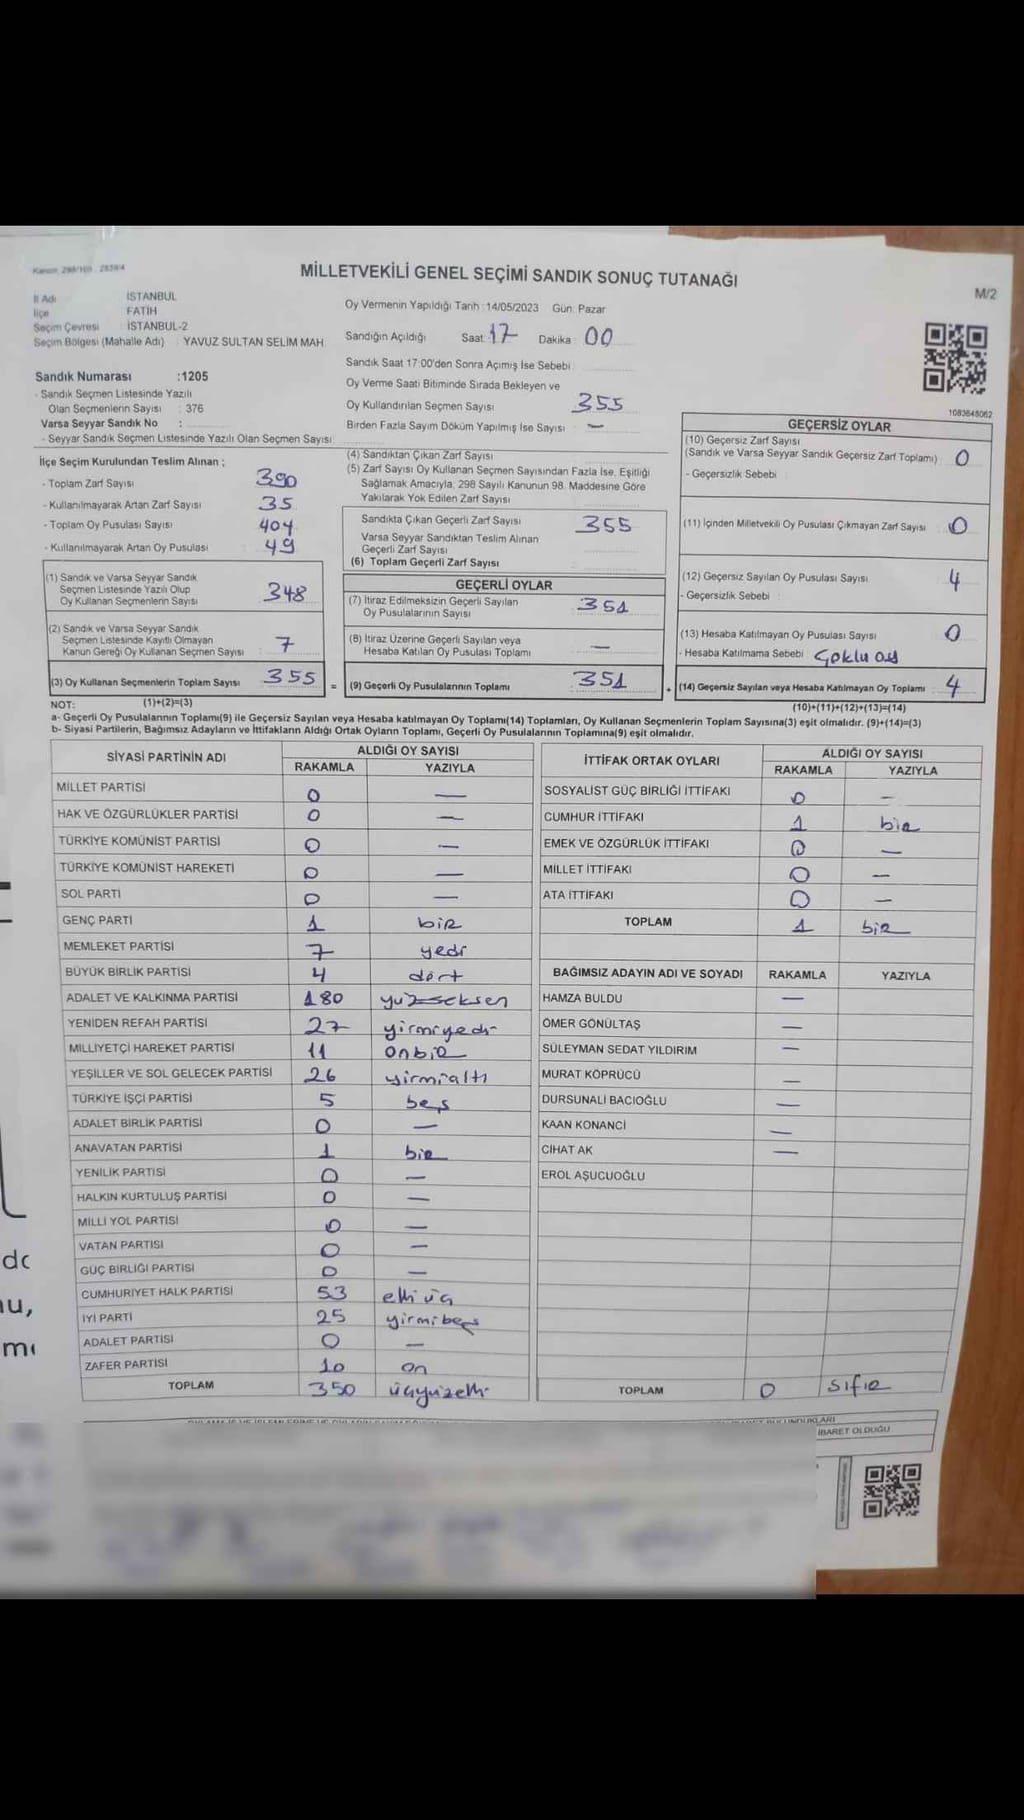 Kanun: 298/105 , 2839/4
MİLLETVEKİLİ GENEL SEÇİMİ SANDIK SONUÇ TUTANAĞI
M/2
İl Adı : İSTANBUL
İlçe : FATİH
Seçim Çevresi : İSTANBUL-2
Seçim Bölgesi (Mahalle Adı) : YAVUZ SULTAN SELİM MAH
Sandık Numarası :1205
- Sandık Seçmen Listesinde Yazılı
Olan Seçmenlerin Sayısı : 376
Varsa Seyyar Sandık No :
- Seyyar Sandık Seçmen Listesinde Yazılı Olan Seçmen Sayısı
Oy Vermenin Yapıldığı Tarih :14/05/2023 Gün: Pazar
Sandığın Açıldığı Saat: 17 Dakika: 00
Sandık Saat 17:00'den Sonra Açımış İse Sebebi:
Oy Verme Saati Bitiminde Sırada Bekleyen ve
Oy Kullandırılan Seçmen Sayısı 355
Birden Fazla Sayım Döküm Yapılmış İse Sayısı —
1083648062
İlçe Seçim Kurulundan Teslim Alınan ;
- Toplam Zarf Sayısı 390
- Kullanılmayarak Artan Zarf Sayısı 35
- Toplam Oy Pusulası Sayısı 404
- Kullanılmayarak Artan Oy Pusulası 49
(1) Sandık ve Varsa Seyyar Sandık
Seçmen Listesinde Yazılı Olup
Oy Kullanan Seçmenlerin Sayısı 348
(2) Sandık ve Varsa Seyyar Sandık
Seçmen Listesinde Kayıtlı Olmayan
Kanun Gereği Oy Kullanan Seçmen Sayısı : 7
(3) Oy Kullanan Seçmenlerin Toplam Sayısı 355 =
(4) Sandıktan Çıkan Zarf Sayısı
(5) Zarf Sayısı Oy Kullanan Seçmen Sayısından Fazla İse, Eşitliği
Sağlamak Amacıyla; 298 Sayılı Kanunun 98. Maddesine Göre
Yakılarak Yok Edilen Zarf Sayısı
Sandıkta Çıkan Geçerli Zarf Sayısı 355
Varsa Seyyar Sandıktan Teslim Alınan
Geçerli Zarf Sayısı
(6) Toplam Geçerli Zarf Sayısı
GEÇERLİ OYLAR
(7) İtiraz Edilmeksizin Geçerli Sayılan
Oy Pusulalarının Sayısı : 351
(8) İtiraz Üzerine Geçerli Sayılan veya
Hesaba Katılan Oy Pusulası Toplamı —
(9) Geçerli Oy Pusulalarının Toplamı 351 +
GEÇERSİZ OYLAR
(10) Geçersiz Zarf Sayısı
(Sandık ve Varsa Seyyar Sandık Geçersiz Zarf Toplamı) 0
- Geçersizlik Sebebi :
(11) İçinden Milletvekili Oy Pusulası Çıkmayan Zarf Sayısı 0
(12) Geçersiz Sayılan Oy Pusulası Sayısı 4
- Geçersizlik Sebebi :
(13) Hesaba Katılmayan Oy Pusulası Sayısı 0
- Hesaba Katılmama Sebebi : Çoklu oy
(14) Geçersiz Sayılan veya Hesaba Katılmayan Oy Toplamı 4
NOT: (1)+(2)=(3) (10)+(11)+(12)+(13)=(14)
a- Geçerli Oy Pusulalarının Toplamı(9) ile Geçersiz Sayılan veya Hesaba katılmayan Oy Toplamı(14) Toplamları, Oy Kullanan Seçmenlerin Toplam Sayısına(3) eşit olmalıdır. (9)+(14)=(3)
b- Siyasi Partilerin, Bağımsız Adayların ve İttifakların Aldığı Ortak Oyların Toplamı, Geçerli Oy Pusulalarının Toplamına(9) eşit olmalıdır.
SİYASİ PARTİNİN ADI ALDIĞI OY SAYISI
RAKAMLA YAZIYLA
MİLLET PARTİSİ 0 —
HAK VE ÖZGÜRLÜKLER PARTİSİ 0 —
TÜRKİYE KOMÜNİST PARTİSİ 0 —
TÜRKİYE KOMÜNİST HAREKETİ 0 —
SOL PARTİ 0 —
GENÇ PARTİ 1 bir
MEMLEKET PARTİSİ 7 yedi
BÜYÜK BİRLİK PARTİSİ 4 dört
ADALET VE KALKINMA PARTİSİ 180 yüzseksen
YENİDEN REFAH PARTİSİ 27 yirmiyedi
MİLLİYETÇİ HAREKET PARTİSİ 11 onbir
YEŞİLLER VE SOL GELECEK PARTİSİ 26 yirmialtı
TÜRKİYE İŞÇİ PARTİSİ 5 beş
ADALET BİRLİK PARTİSİ 0 —
ANAVATAN PARTİSİ 1 bir
YENİLİK PARTİSİ 0 —
HALKIN KURTULUŞ PARTİSİ 0 —
MİLLİ YOL PARTİSİ 0 —
VATAN PARTİSİ 0 —
GÜÇ BİRLİĞİ PARTİSİ 0 —
CUMHURİYET HALK PARTİSİ 53 elliüç
İYİ PARTİ 25 yirmibeş
ADALET PARTİSİ 0 —
ZAFER PARTİSİ 10 on
TOPLAM 350 üçyüzelli
İTTİFAK ORTAK OYLARI ALDIĞI OY SAYISI
RAKAMLA YAZIYLA
SOSYALİST GÜÇ BİRLİĞİ İTTİFAKI 0 —
CUMHUR İTTİFAKI 1 bir
EMEK VE ÖZGÜRLÜK İTTİFAKI 0 —
MİLLET İTTİFAKI 0 —
ATA İTTİFAKI 0 —
TOPLAM 1 bir
BAĞIMSIZ ADAYIN ADI VE SOYADI RAKAMLA YAZIYLA
HAMZA BULDU —
ÖMER GÖNÜLTAŞ —
SÜLEYMAN SEDAT YILDIRIM —
MURAT KÖPRÜCÜ —
DURSUNALİ BACIOĞLU —
KAAN KONANCİ —
CİHAT AK —
EROL AŞUCUOĞLU
TOPLAM 0 sıfır
İBARET OLDUĞU